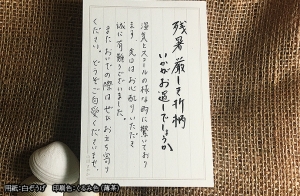 残暑厳しき折柄
いかがお過しでしょうか
湿気とスコールの様な雨に驚いており
ます。先日はお心配りいただき
誠に有難うございました。
またおいでの際はぜひお立ち寄り
ください。どうぞご自愛くださいませ。
用紙:白ぞうげ 印刷色:くるみ色(薄茶)